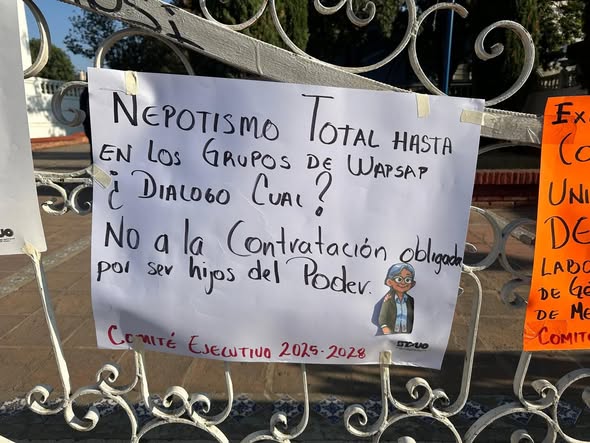 NEPOTISMO TOTAL HASTA
EN LOS GRUPOS DE WAPSAP
¿ DIALOGO CUAL ?
NO A la Contratación obligada
por ser hijos del Poder.
COMITÉ EJECUTIVO 2025-2028
EX
CO
UNI
DE
LABO
DE GÉ
DE ME
COMITÉ